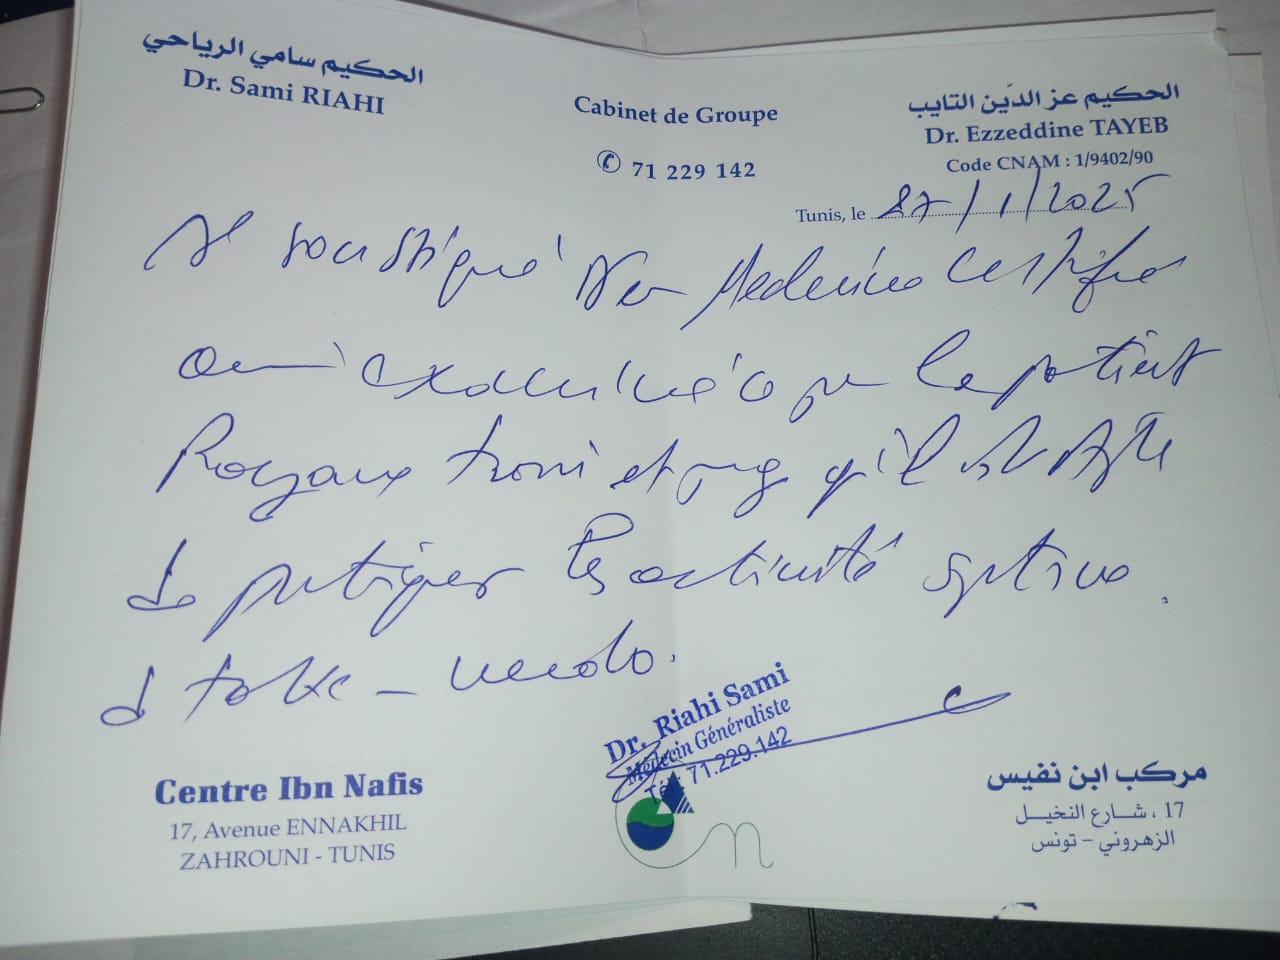 الحكيم سامي الرياحي
Dr. Sami RIAHI
Cabinet de Groupe
71 229 142
الحكيم عز الدّين التايب
Dr. Ezzeddine TAYEB
Code CNAM : 1/9402/90
Tunis, le 27/1/2025
soussigné Medecine Certifie
examiné ce jour le patient
et qu'il est apte
de pratiquer les activités sportives
Dr. Riahi Sami
Médecin Généraliste
Tél: 71.229.142
Centre Ibn Nafis
17, Avenue ENNAKHIL
ZAHROUNI - TUNIS
مركب ابن نفيس
17 ، شارع النخيل
الزهروني - تونس